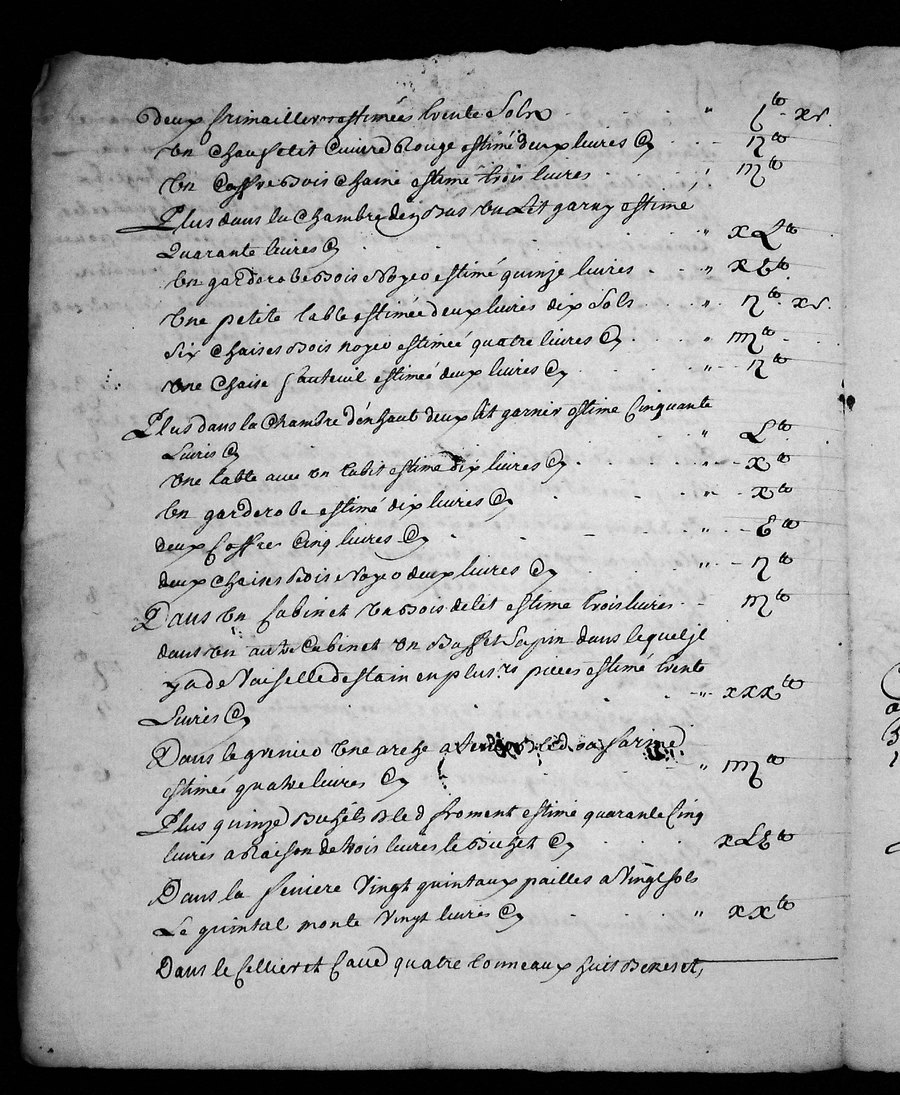 deux Crimailleres estimées trente Sols " I lt xs.
Un estimé deux livres Cy IIlt
Un Coffre Bois Chaine estimé trois livres IIIlt
Plus dans la Chambre den Bas Un Lit garny estimé
Quarante livres Cy " XLlt
Un garderobe Bois Noyeo estimé quinze livres " XVlt
Une petite table estimée deux livres dix Sols " IIlt xs.
Six Chaises Bois noyeo estimée quatre livres Cy " IIIIlt
Une Chaise fauteuil estimée deux livres Cy " IIlt
Plus dans la Chambre d'enhaut deux lit garnir estime Cinquante
Livres Cy " Llt
Une table avec Un tabit estimé dix livres Cy " Xlt
Un garderobe estimé dix livres Cy " Xlt
deux Coffres Cinq livres Cy " Vlt
deux Chaises Bois Noyeo deux livres Cy " IIlt
Dans Un Cabinet Un Bois de lit estimé trois livres IIIlt
dans Un autre Cabinet Un Buffet Sapin dans lequel jl
y a de Vaiselle destain en plus.rs pieces estimé trente
Livres Cy " XXXlt
Dans le grenieo Une arche a bled ou farine
estimée quatre livres Cy " IIIIlt
Plus quinze Bichets Bled froment estimé quarante Cinq
livres a Raison de trois livres le Bichet Cy XLVlt
Dans la feniere Vingt quintaux pailles a Vingt Sols
Le quintal monte Vingt livres Cy " XXlt
Dans le Cellier et Cave quatre tonneaux huit et,